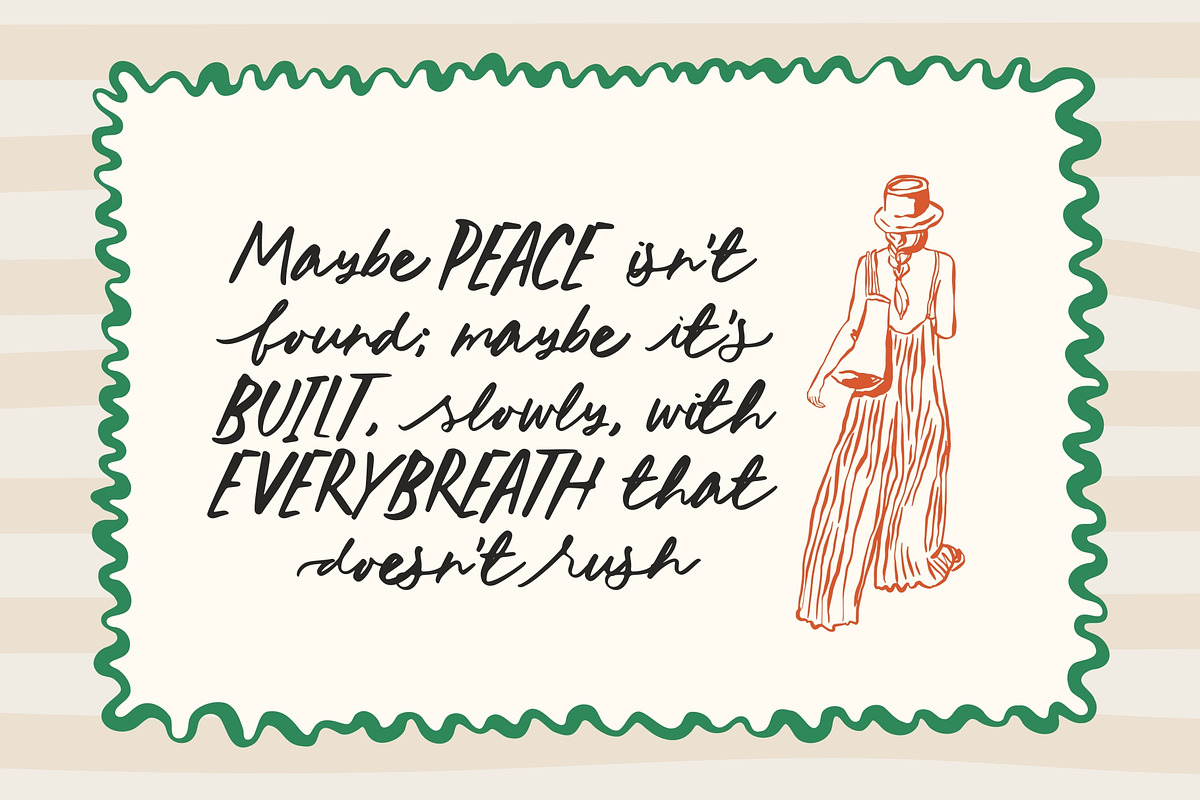 Maybe PEACE isn't
found; maybe it's
BUILT, slowly, with
EVERYBREATH that
doesn't rush